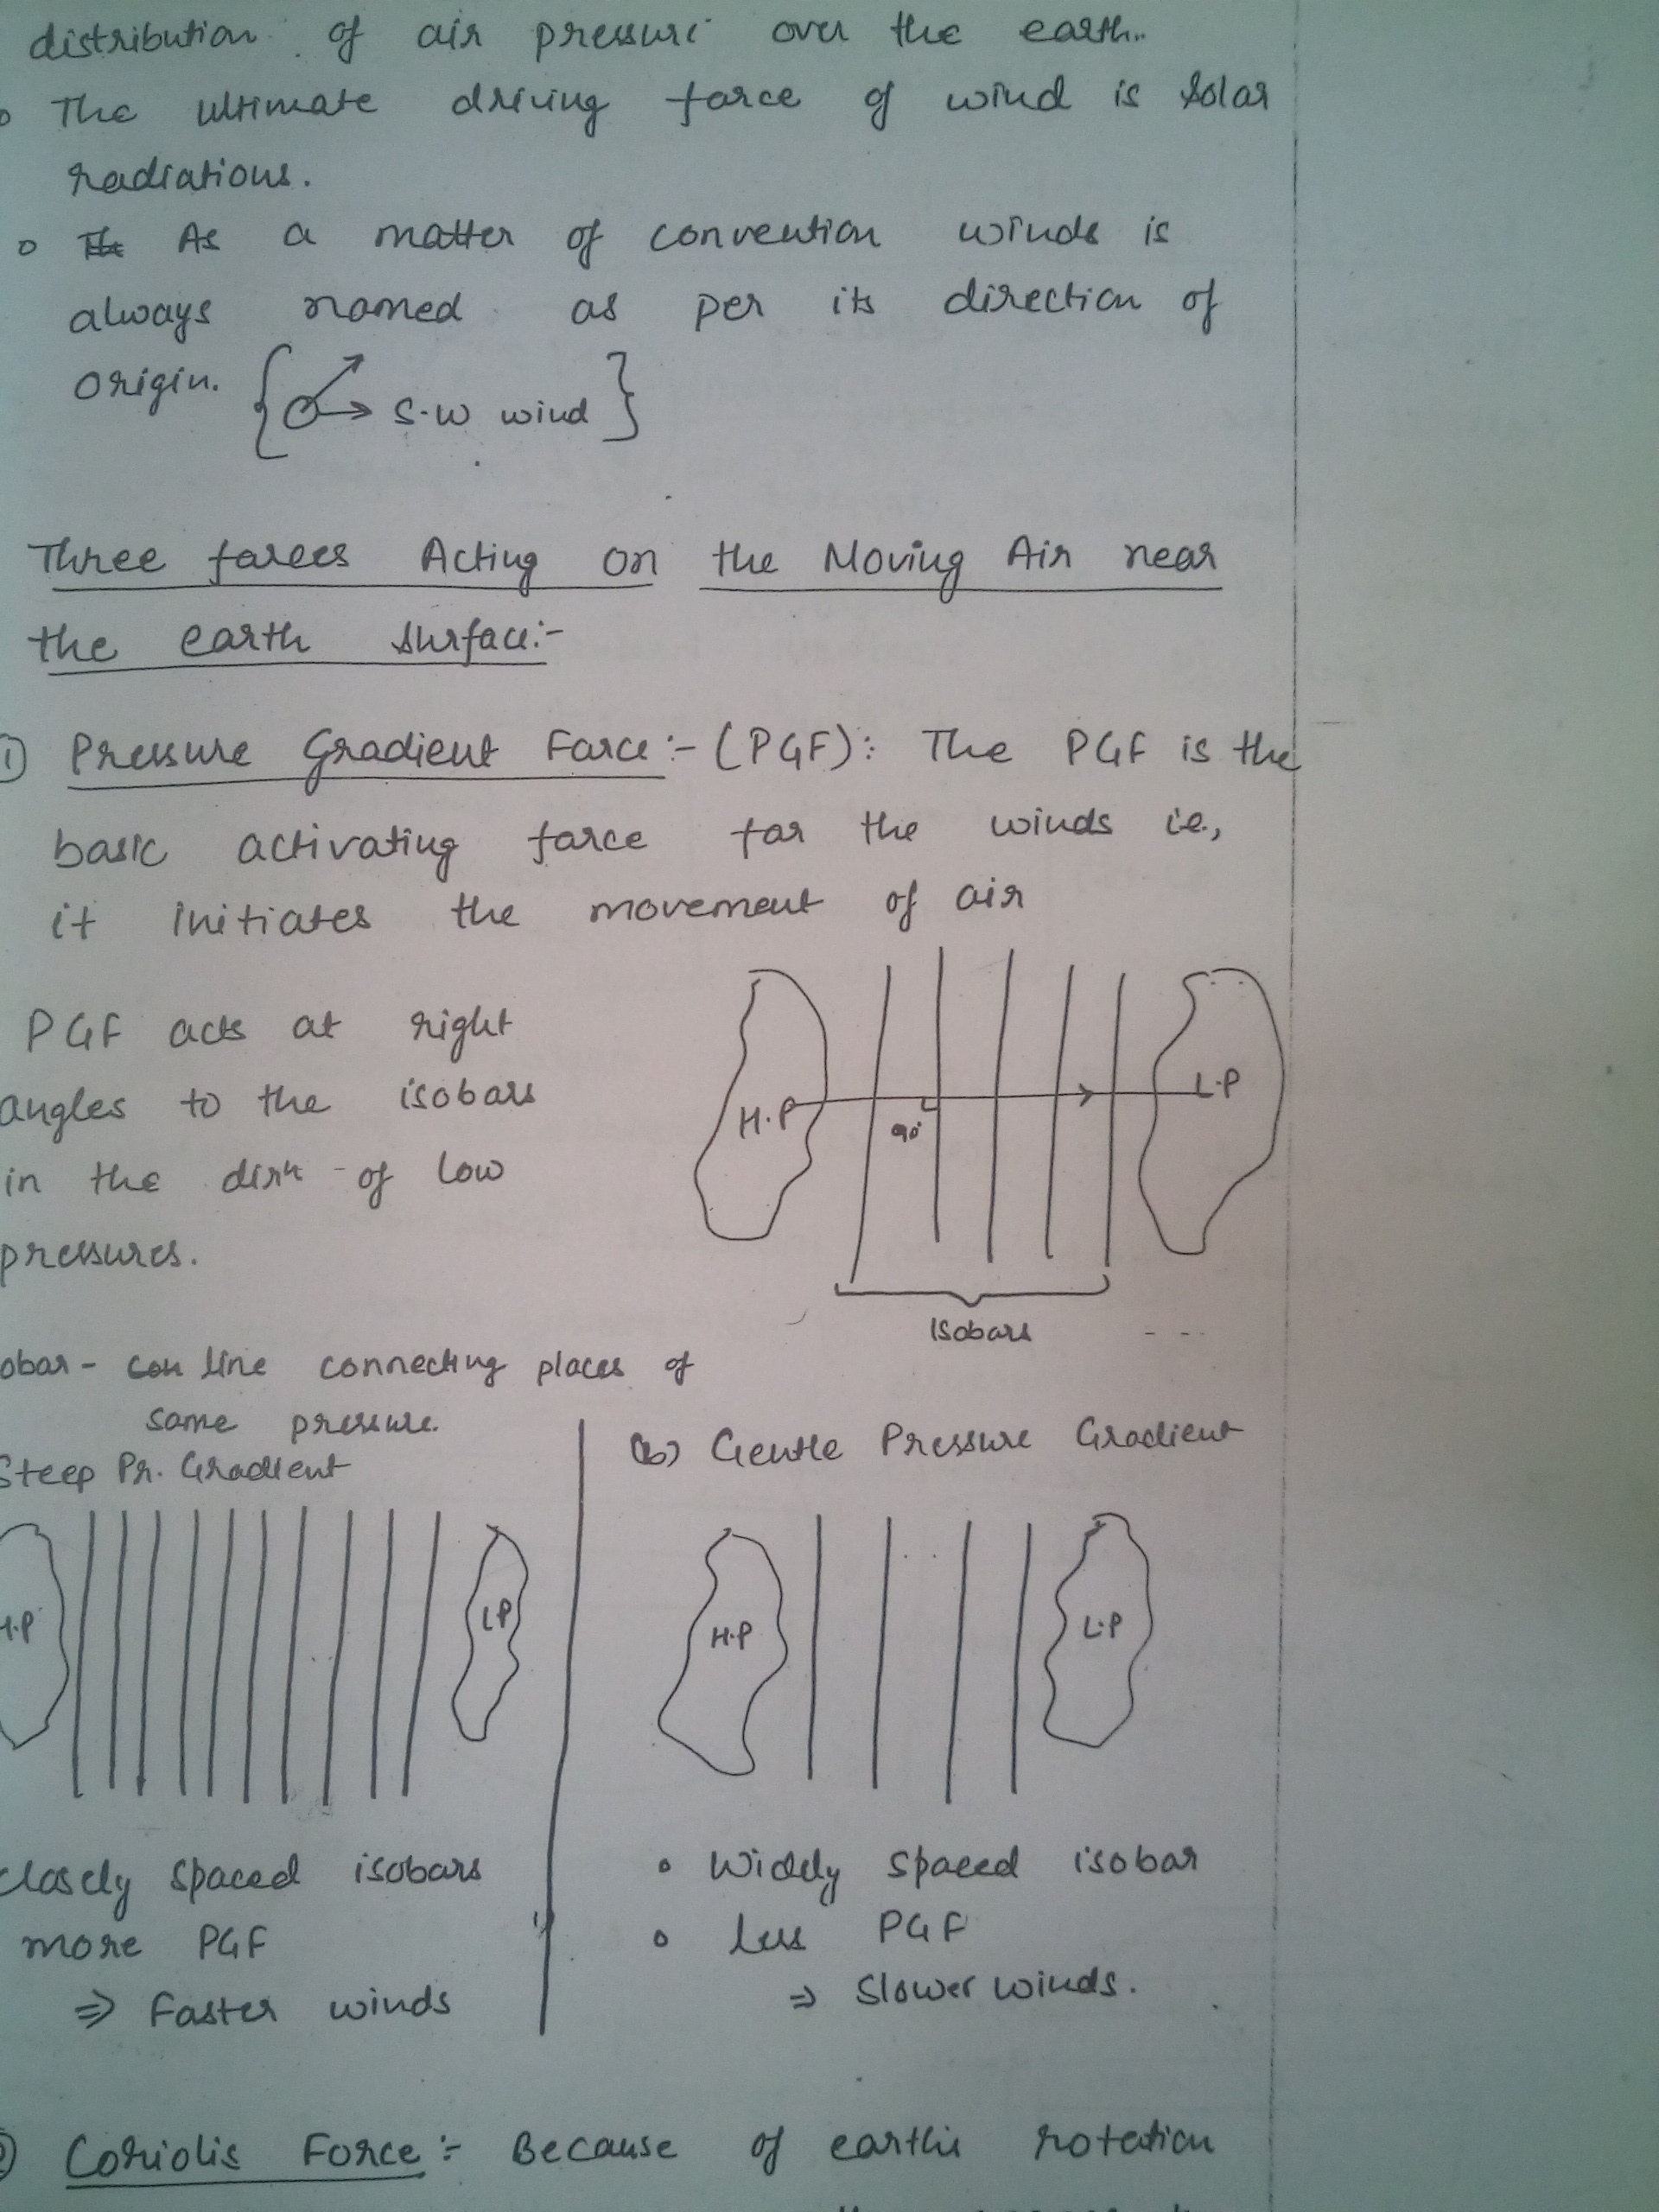 distribution of air pressure over the earth.
The ultimate driving force of wind is solar
radiations.
As a matter of convention winds is
always named as per its direction of
origin. { S.W wind }
Three forces Acting on the Moving Air near
the earth surface:-
1) Pressure Gradient Force:- (PGF): The PGF is the
basic activating force for the winds i.e.,
it initiates the movement of air
PGF acts at right
angles to the isobars
in the dirn of low
pressures.
H.P 90° L.P
Isobars
obar - line connecting places of
same pressure.
Steep Pr. Gradient
H.P LP
closely spaced isobars
more PGF
⇒ Faster winds
(b) Gentle Pressure Gradient
H.P L.P
• Widely spaced isobar
• Less PGF
⇒ Slower winds.
Coriolis Force:- Because of earth's rotation